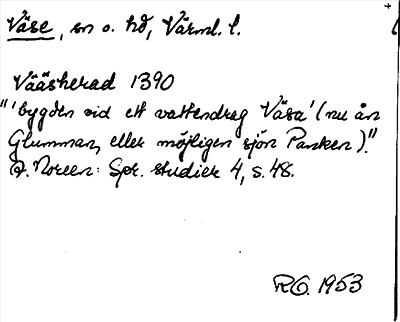 Väse, sn o. hd, Värml. l.
Vääsherad 1390
"'bygden vid ett vattendrag Väsa' (nu ån
Glumman, eller möjligen sjön Panken)."
A. Noreen: Spr. studier 4, s. 48.
R.O. 1953